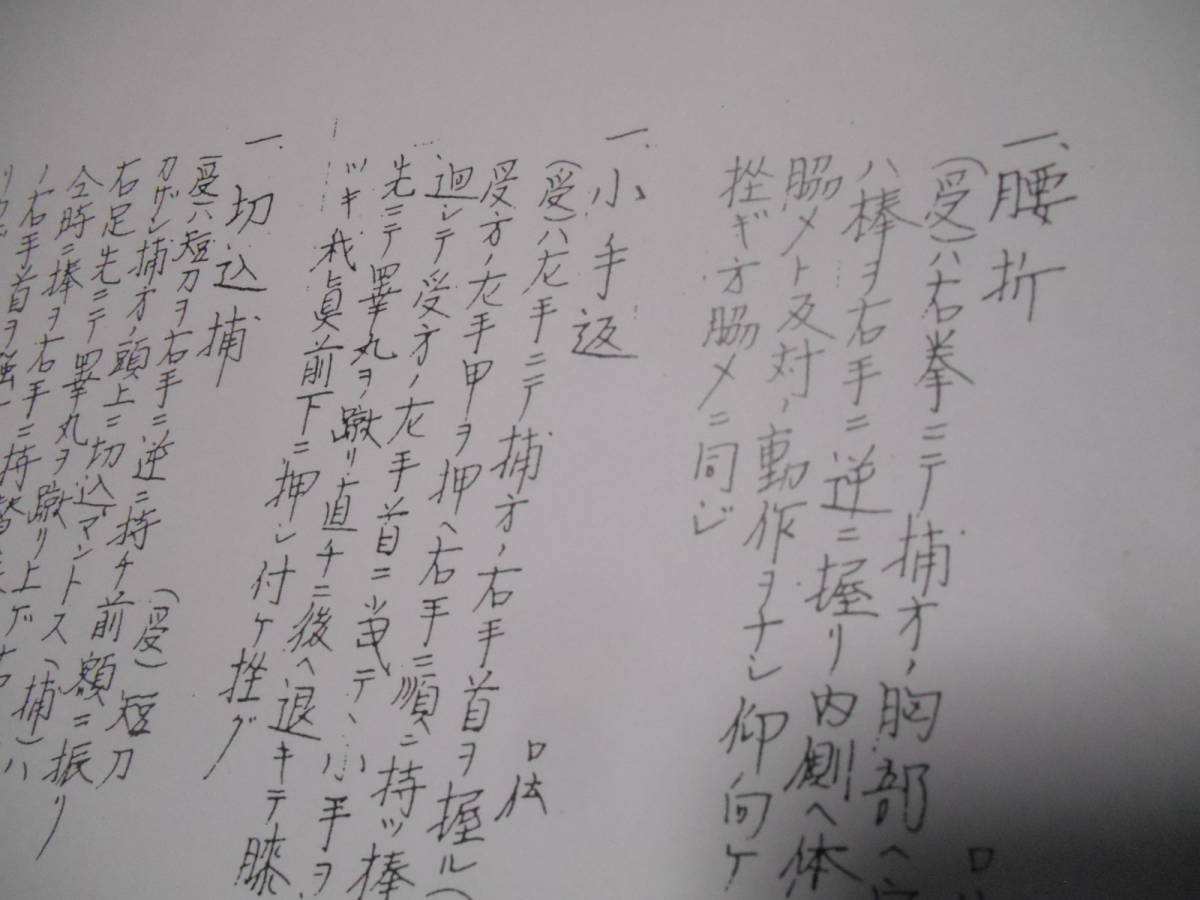 一、腰折
口
(受)ハ右拳ニテ捕方ノ胸部ヘ
ハ棒ヲ右手ニ逆ニ握リ内側ヘ体
脇メト反対ノ動作ヲナシ仰向ケ
挫ギ方脇メニ同ジ
一、小手返
口伝
(受)ハ左手ニテ捕方ノ右手首ヲ握ル(
受方ノ左手甲ヲ押ヘ右手ニ順ニ持ツ棒
迴シテ受方ノ左手首ニ当テ、小手ヲ
先ニテ睾丸ヲ蹴リ直チニ後ヘ退キテ膝
ツキ我眞前下ニ押シ付ケ挫グ
一、切込捕
(受)短刀
(受)ハ短刀ヲ右手ニ逆ニ持チ前額ニ振リ
カザシ捕方ノ頭上ニ切込マントス(捕)ハ
右足先ニテ睾丸ヲ蹴リ上ゲ
仝時ニ棒ヲ右手ニ持替
ノ右手首ヲ強